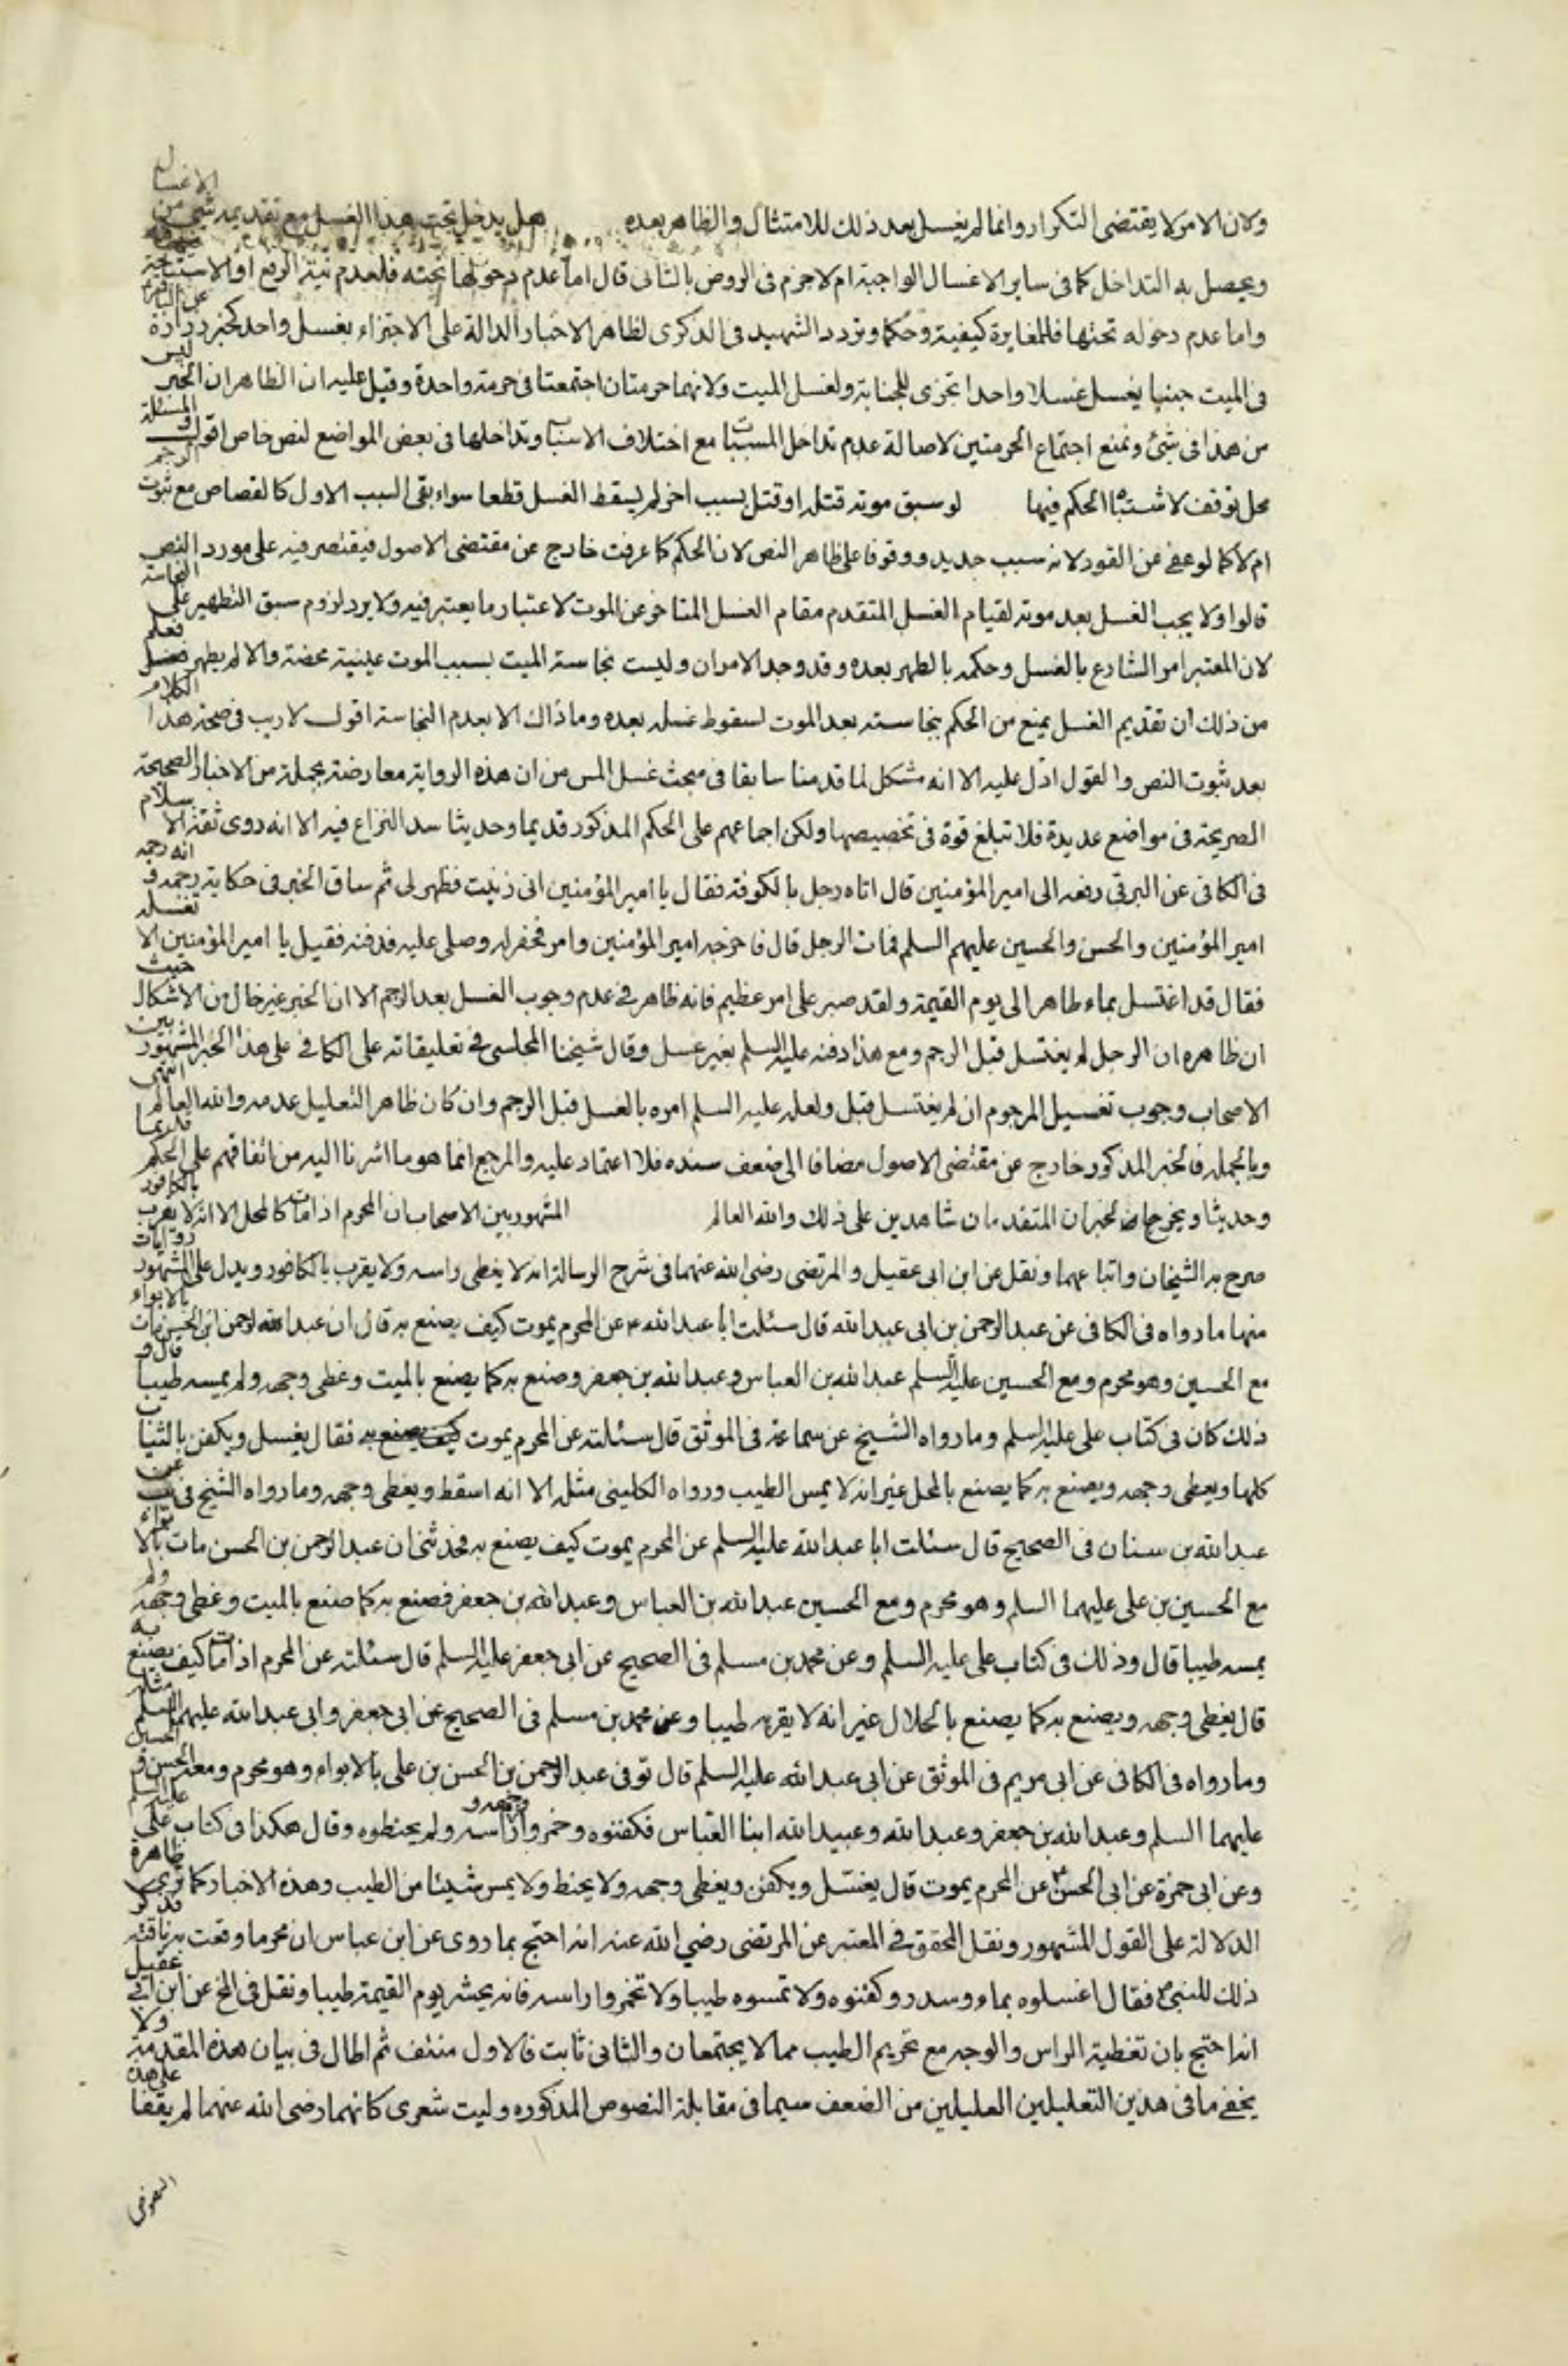 ولان الامر لا يقتضى التكرار وانما لم يغسل بعد ذلك للامتثال والظاهر بعده هل يدخل تحت هذا الغسل مع تقديمه شيئ من الاغسال
ويحصل به التداخل كما فى ساير الاغسال الواجبة ام لا جزم فى الروض بالثانى قال اما عدم دخولها تحته فلعدم نية الرفع او الاستباحة
واما عدم دخوله تحتها فللمغايرة كيفية وحكما وتردد الشهيد فى الذكرى لظاهر الاخبار الدالة على الاجتزاء بغسل واحد كخبر زرارة عن الباقر
فى الميت جنبا يغسل غسلا واحدا تجزى للجنابة ولغسل الميت ولانهما حرمتان اجتمعتا فى حرمة واحدة وقيل عليه ان الظاهران الخبر ليس
من هذا فى شئ ونمنع اجتماع الحرمتين لاصالة عدم تداخل المسببات مع اختلاف الاسباب وتداخلها فى بعض المواضع لنص خاص اقول والمسئلة
محل توقف لاشتباه الحكم فيها لو سبق موته قتله او قتل بسبب اخر لم يسقط الغسل قطعا سواء بقى السبب الاول كالقصاص مع ثبوت الرجم
ام لا كما لو عفى عن القود لانه سبب جديد ووقوفا على ظاهر النص لان الحكم كما عرفت خارج عن مقتضى الاصول فيقتصر فيه على مورد النص
قالوا ولا يجب الغسل بعد موته لقيام الغسل المتقدم مقام الغسل المتاخر عن الموت لاعتبار ما يعتبر فيه ولا يرد لزوم سبق التطهير على النجاسة
لان المعتبر امر الشارع بالغسل وحكمه بالطهر بعده وقد وجد الامران وليست نجاسة الميت بسبب الموت عينية محضة والا لم يطهر فعلم
من ذلك ان تقديم الغسل يمنع من الحكم بنجاسته بعد الموت لسقوط غسله بعده وما ذاك الا بعدم النجاسة اقول لا ريب فى صحة هذا الكلام
بعد ثبوت النص والقول ادل عليه الا انه مشكل لما قدمنا سابقا فى مبحث غسل المس من ان هذه الرواية معارضة بجملة من الاخبار الصحيحة
الصريحة فى مواضع عديدة فلا تبلغ قوة فى تخصيصها ولكن اجماعهم على الحكم المذكور قديما وحديثا سد النزاع فيه الا انه روى ثقة الاسلام
فى الكافى عن البرقى رفعه الى امير المؤمنين قال اتاه رجل بالكوفة فقال يا امير المؤمنين انى زنيت فطهرلى ثم ساق الخبر فى حكاية رجمه و انه رجمه
امير المؤمنين والحسن والحسين عليهم السلم فمات الرجل قال فاخرجه امير المؤمنين وامر فحفر له وصلى عليه فدفنه فقيل يا امير المؤمنين الا تغسله
فقال قد اغتسل بماء طاهر الى يوم القيمة ولقد صبر على امر عظيم فانه ظاهر فى عدم وجوب الغسل بعد الرجم الا ان الخبر غير خال من الاشكال حيث
ان ظاهره ان الرجل لم يغتسل قبل الرجم ومع هذا دفنه عليه السلم بغير غسل وقال شيخنا المجلسى فى تعليقاته على الكافى على هذا الخبر المشهور بين
الاصحاب وجوب تغسيل المرجوم ان لم يغتسل قبل ولعله عليه السلم امره بالغسل قبل الرجم وان كان ظاهر التعليل عدمه والله العالم انتهى
وبالجملة فالخبر المذكور خارج عن مقتضى الاصول مضافا الى ضعف سنده فلا اعتماد عليه والمرجع انما هو ما اشرنا اليه من اتفاقهم على الحكم قديما
وحديثا ويخرج الخبران المتقدمان شاهدين على ذلك والله العالم المشهور بين الاصحاب ان المحرم اذا مات كالمحل الا انه لا يقرب بالكافور
صرح به الشيخان واتباعهما ونقل عن ابن ابى عقيل والمرتضى رضى الله عنهما فى شرح الرسالة انه لا يغطى راسه ولا يقرب بالكافور ويدل على المشهور روايات
منها ما رواه فى الكافى عن عبد الرحمن بن ابى عبد الله قال سئلت ابا عبد الله ع عن المحرم يموت كيف يصنع به قال ان عبد الرحمن ابن الحسن مات بالابواء
مع الحسين وهو محرم ومع الحسين عليه السلم عبد الله بن العباس وعبد الله بن جعفر وصنع به كما يصنع بالميت وغطى وجهه ولم يمسه طيبا قال و
ذلك كان فى كتاب على عليه السلم وما رواه الشيخ عن سماعة فى الموثق قال سئلته عن المحرم يموت كيف يصنع به فقال يغسل ويكفن بالثياب
كلها ويغطى وجهه ويصنع به كما يصنع بالمحل غير انه لا يمس الطيب ورواه الكلينى مثله الا انه اسقط ويغطى وجهه وما رواه الشيخ فى يب عن
عبد الله بن سنان فى الصحيح قال سئلت ابا عبد الله عليه السلم عن المحرم يموت كيف يصنع به فحدثنى ان عبد الرحمن بن الحسن مات بالابواء
مع الحسين بن على عليهما السلم وهو محرم ومع الحسين عبد الله بن العباس وعبد الله بن جعفر فصنع به كما صنع بالميت وغطى وجهه ولم
يمسه طيبا قال وذلك فى كتاب على عليه السلم وعن محمد بن مسلم فى الصحيح عن ابى جعفر عليه السلم قال سئلته عن المحرم اذا مات كيف يصنع به
قال يغطى وجهه ويصنع به كما يصنع بالحلال غير انه لا يقربه طيبا وعن محمد بن مسلم فى الصحيح عن ابى جعفر وابى عبد الله عليهما السلم مثله
وما رواه فى الكافى عن ابى مريم فى الموثق عن ابى عبد الله عليه السلم قال توفى عبد الرحمن بن الحسن بن على بالابواء وهو محرم ومعه الحسن و الحسين
عليهما السلم وعبد الله بن جعفر وعبد الله وعبيد الله ابنا العباس فكفنوه وخمروا وجهه و راسه ولم يحنطوه وقال هكذا فى كتاب على عليه السلم
وعن ابى حمزة عن ابى الحسن ع عن المحرم يموت قال يغتسل ويكفن ويغطى وجهه ولا يحنط ولا يمس شيئا من الطيب وهذه الاخبار كما ترى ظاهرة
الدلالة على القول المشهور ونقل المحقق فى المعتبر عن المرتضى رضي الله عنه انه احتج بما روى عن ابن عباس ان محرما وقصت به ناقته فذكر
ذلك للنبى ص فقال اغسلوه بماء وسدر وكفنوه ولا تمسوه طيبا ولا تخمروا راسه فانه يحشر يوم القيمة طيبا ونقل فى المخ عن ابن ابى عقيل
انه احتج بان تغطية الراس والوجه مع تحريم الطيب مما لا يجتمعان والثانى ثابت فالاول منتف ثم اطال فى بيان هذه المقدمة ولا
يخفى ما فى هذين التعليلين العليلين من الضعف سيما فى مقابلة النصوص المذكوره وليت شعرى كانهما رضى الله عنهما لم يقفا على هذه